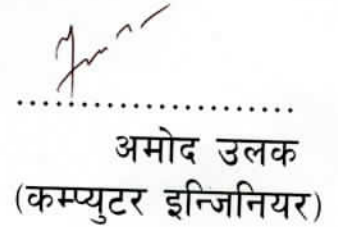 ......................
अमोद उलक
(कम्प्युटर इन्जिनियर)